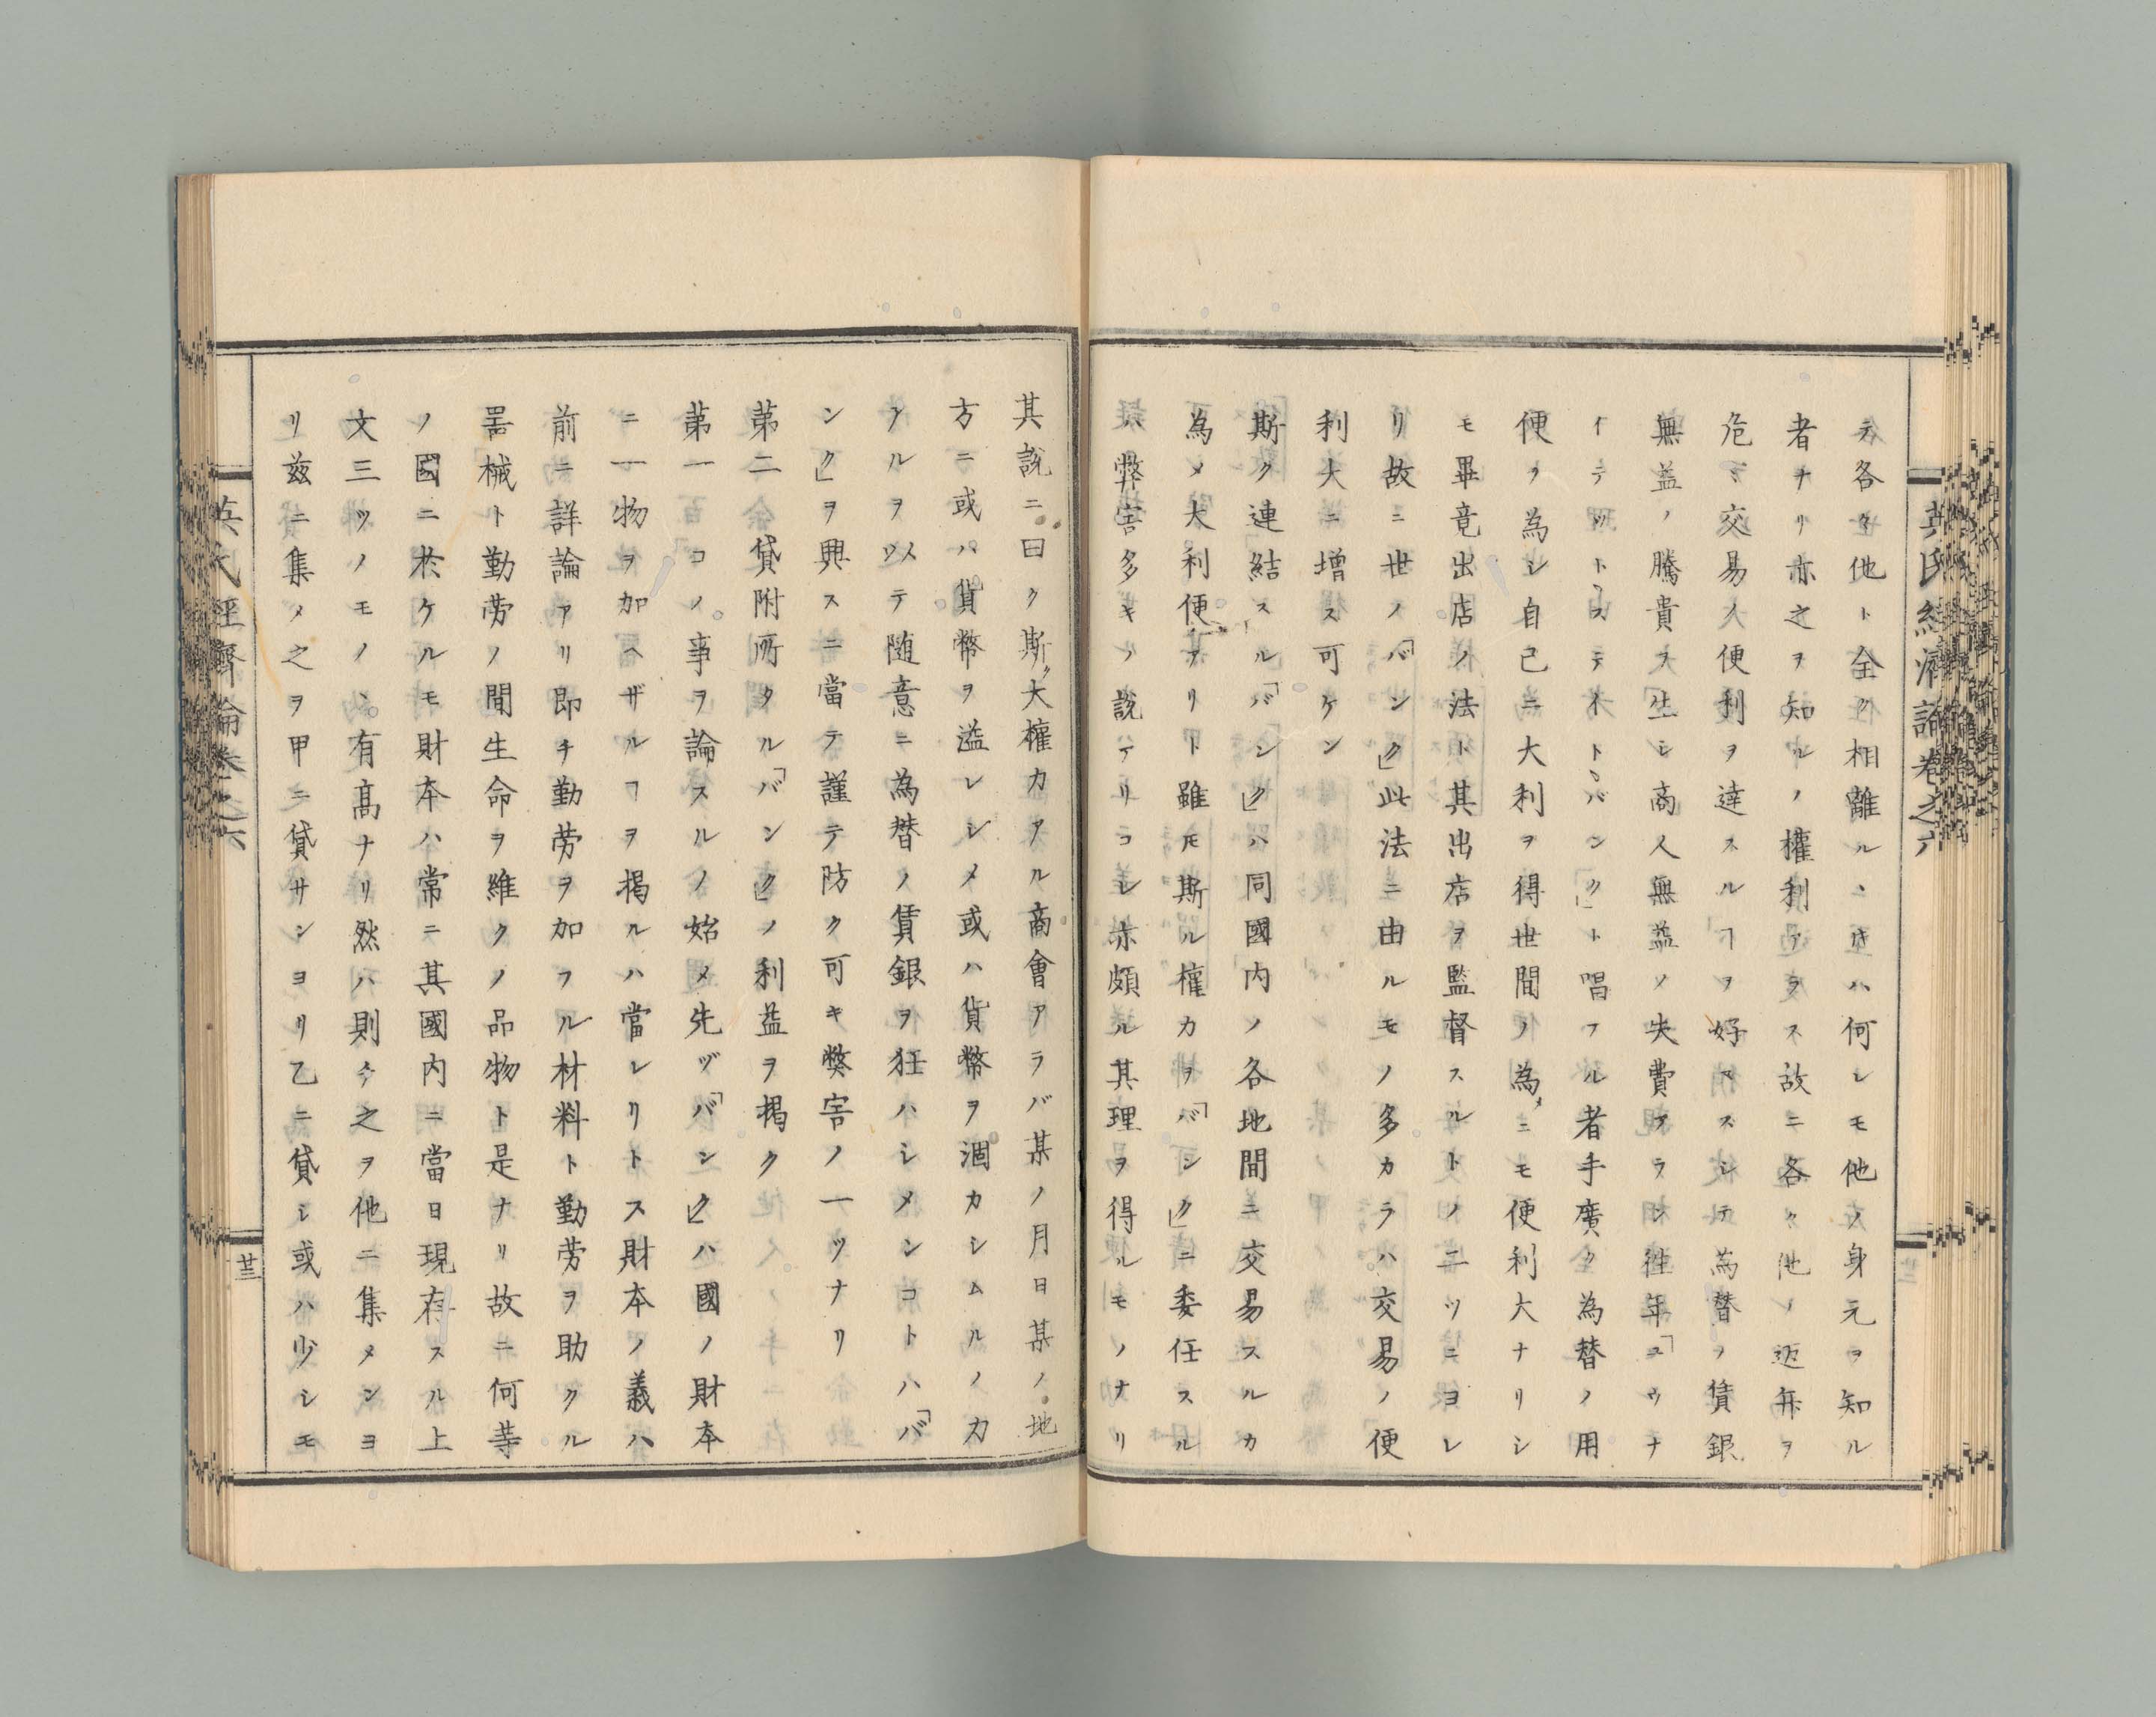 英氏経済論巻之六
テ各々他ト全ク相離ルニ付ハ何レモ他ノ身元ヲ知ル
者ナリ亦之ヲ知ルノ權利アラス故ニ各々他ノ返弁ヲ
危ミ交易ノ便利ヲ達スルヿヲ好マズシテ為替ノ賃銀
無益ノ騰貴ヲ生シ商人無益ノ失費アラン往年「ユウナ
イテットステストバンク」ト唱フル者手廣ク為替ノ用
便ヲ為シ自己ニ大利ヲ得世間ノ為メニモ便利大ナリシ
モ畢竟出店ノ法ト其出店ヲ監督スルトノ二ツニヨレ
リ故ニ世ノ「バンク」此法ニ由ルモノ多カラハ交易ノ便
利大ニ増ス可ケン
斯ク連結スル「バンク」ハ同國内ノ各地間ニ交易スルカ
為メ大利便アリト雖モ斯ル權力ヲ「バンク」ニ委任スル
弊害多キノ説アリコレ亦頗ル其理ヲ得ルモノナリ
其説ニ曰ク斯ク大權力アル商會アラバ某ノ月日某ノ地
方ニ或ハ貨幣ヲ溢レシメ或ハ貨幣ヲ涸カシムルノ力
アルヲ以テ随意ニ為替ノ賃銀ヲ狂ハシメンコトハ「バ
ンク」ヲ興スニ當テ謹テ防ク可キ弊害ノ一ツナリ
第二貸附所タル「バンク」ノ利益ヲ掲ク
第一コノ事ヲ論スルノ始メ先ヅ「バンク」ハ國ノ財本
ニ一物ヲ加ヘザルヿヲ掲ルハ當レリトス財本ノ義ハ
前ニ詳論アリ即チ勤勞ヲ加フル材料ト勤勞ヲ助クル
噐械ト勤勞ノ間生命ヲ維クノ品物ト是ナリ故ニ何等
ノ國ニ於ケルモ財本ハ常ニ其國内ニ當日現存スル上
文三ツノモノヽ有高ナリ然ハ則今之ヲ他ニ集メンヨ
リ兹ニ集メ之ヲ甲ニ貸サンヨリ乙ニ貸シ或ハ少シモ
英氏経濟論巻之六
廿三